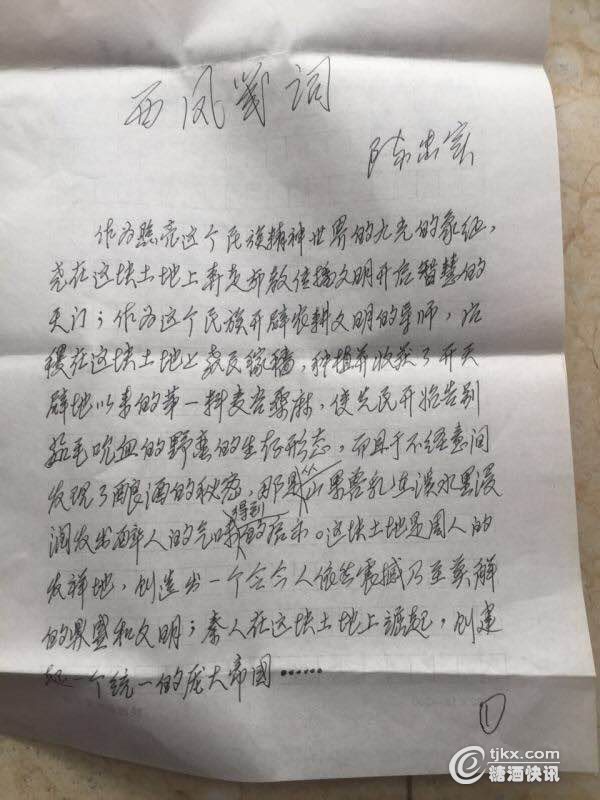 西凤赋词
陈忠实
作为照亮这个民族精神世界的火光的象征，
尧在这块土地上布教传播文明开启智慧的
天门；作为这个民族开辟农耕文明的导师，后
稷在这块土地上教民稼穑，种植并收获了开天
辟地以来的第一料麦谷粟麻，使先民开始告别
茹毛饮血的野蛮的生存形态，而且于不经意间
发现了酿酒的秘密，那是从山果兽乳在淡水里浸
润发出醉人的气味得到的启示。这块土地是周人的
发祥地，创造出一个令今人依然震撼乃至
的鼎盛和文明；秦人在这块土地上崛起，创建
起一个统一的庞大帝国……
①
tjkx.com
糖酒快讯